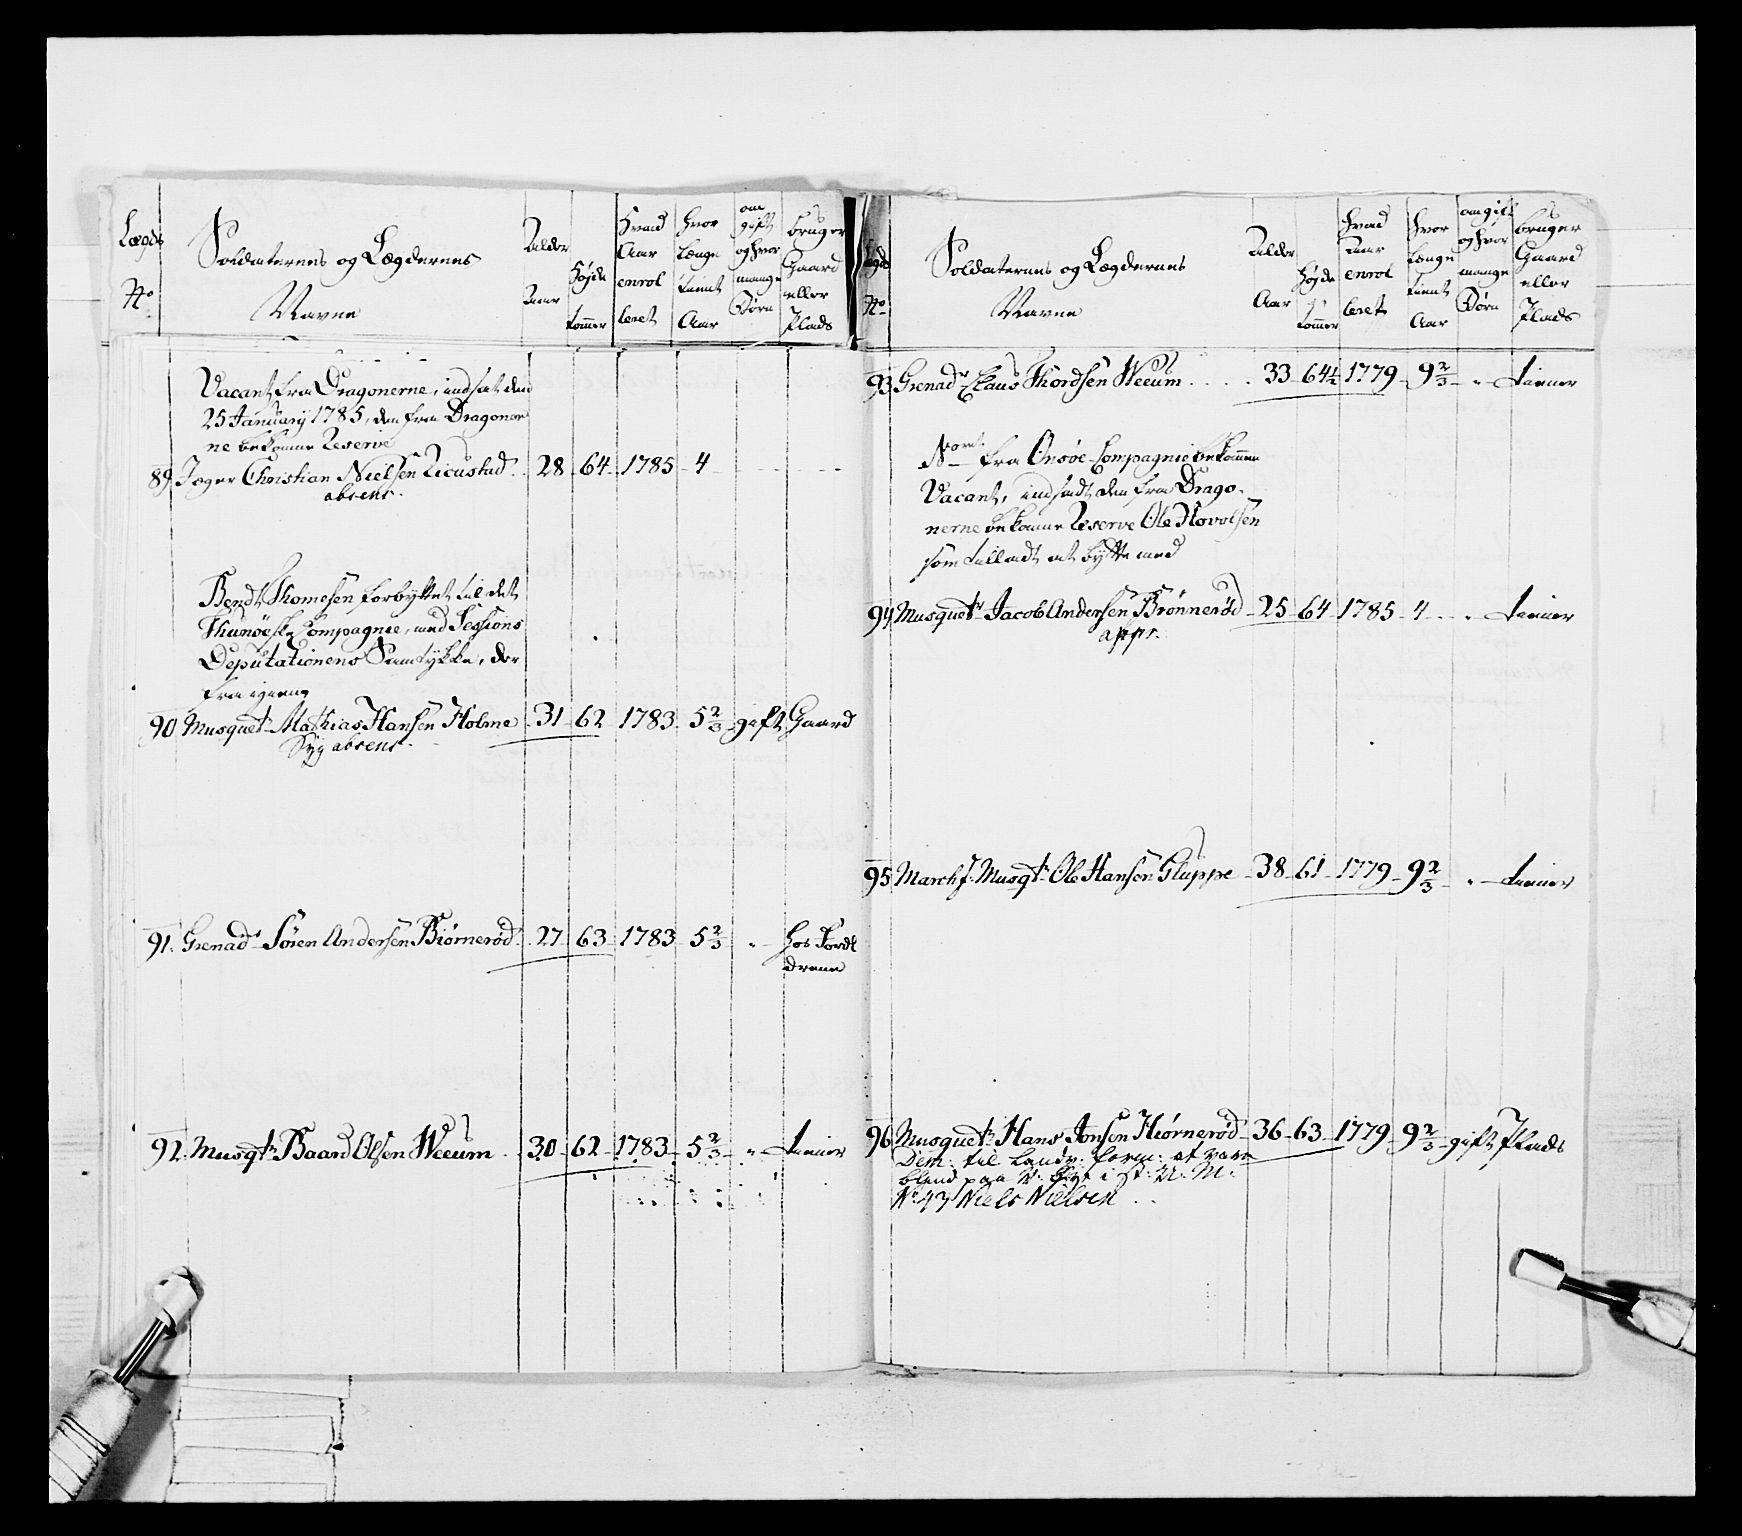 Lægds
No
Soldaternes og Lægdernes
Navne
Alder
Aar
Højde
tommer
Hvad
Aar
enrol
leret
hvor
længe
tient
Aar
om
gift
og hvor
mange
Børn
bruger
Gaard
eller
Plads
Vacant fra Dragonerne, indsat den
25 January 1785, den fra Dragoner
ne bekomne Reserve
89 Jæger Christian Nielsen 28 64 1785 4
absent.
Bendt Thomesen forbyttet til det
Thunöeske Compagnie, med Sessions
Deputationens Samtykke, der
fra igien
90 Musquetr Mathias Hansen Holme 31 62 1783 5 2/3 gift Gaard
Syg absent.
91. Grenadr Sören Andersen Biörneröd 27 63 1783 5 2/3 " hos Foræl
drene
92. Musqtr Baard Olsen Weeum 30 62 1783 5 2/3 " tiener
Lægds
No
Soldaternes og Lægdernes
Navne
Alder
Aar
Højde
tommer
Hvad
Aar
enrol
leret
hvor
længe
tient
Aar
om gift
og hvor
mange
Børn
bruger
Gaard
eller
Plads
93 Grenadr Claus Thordsen Weeum 33 64 1/2 1779 9 2/3 " tiener
fra Onsöe Compagnie bekomne
Vacant, indsadt den fra Drago-
nerne bekomne Reserve Ole
som tilladt at bytte med
94 Musquetr Jacob Andersen Brönneröd 25 64 1785 4 " tiener
appr.
95 Marchf. Musqtr Ole Hansen Gluppe 38 61 1779 9 2/3 " tiener
96 Musquetr Hans Jonsen Hiörneröd 36 63 1779 9 2/3 gift Plads
Dem. til Landv. form. at være
blend paa v. Øye i st. N. M.
No 43 Niels Nielsen